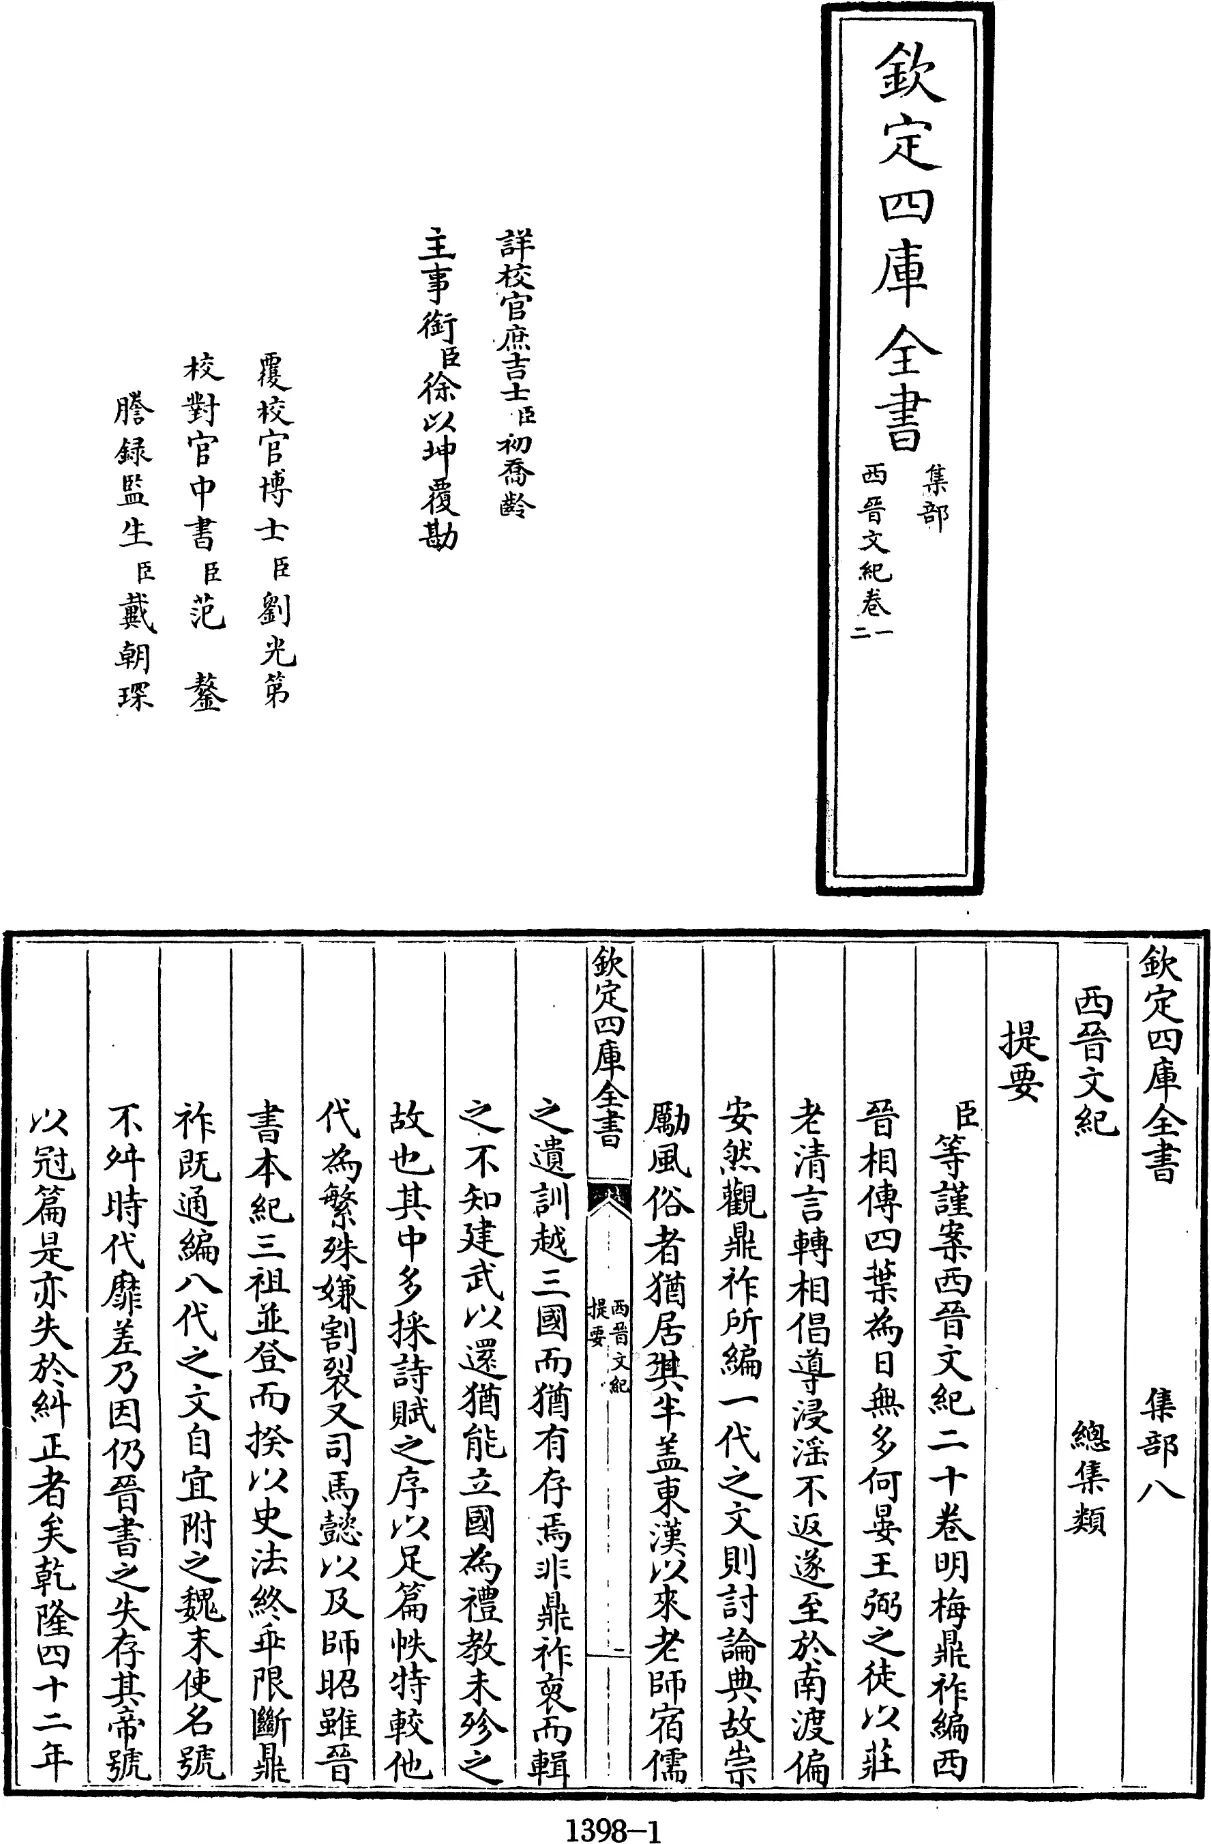 欽定四庫全書
集部
西晉文紀卷一
二
詳校官庶吉士臣初喬齡
主事銜臣徐以坤覆勘
覆校官博士臣劉光第
校對官中書臣范鏊
謄録監生臣戴朝琛
欽定四庫全書 集部八
西晉文紀 總集類
提要
臣等謹案西晉文紀二十卷明梅鼎祚編西
晉相傳四葉為日無多何晏王弼之徒以莊
老清言轉相倡導浸淫不返遂至於南渡偏
安然觀鼎祚所編一代之文則討論典故崇
勵風俗者猶居其半盖東漢以來老師宿儒
欽定四庫全書
西晉文紀
提要
一
之遺訓越三國而猶有存焉非鼎祚裒而輯
之不知建武以還猶能立國為禮教未殄之
故也其中多採詩賦之序以足篇帙特較他
代為繁殊嫌割裂又司馬懿以及師昭雖晉
書本紀三祖並登而揆以史法終乖限斷鼎
祚既通編八代之文自宜附之魏末使名號
不舛時代靡差乃因仍晉書之失存其帝號
以冠篇是亦失於糾正者矣乾隆四十二年
1398-1